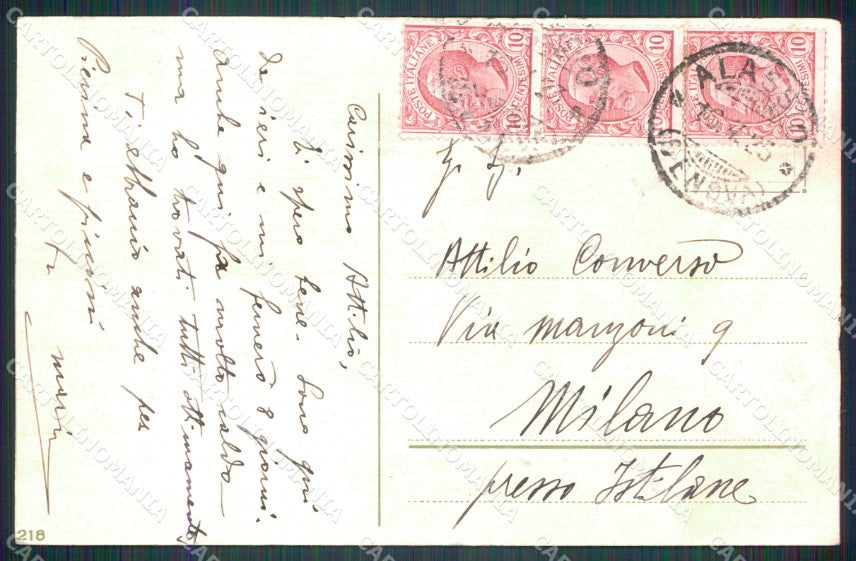 Carissimo Attilio,
Ti spero bene. Sono qui
da ieri e mi fermerò 8 giorni.
Anche qui fa molto caldo
ma ho trovati tutti ottimamente
Ti abbraccio anche per
Pierina e
Maria
POSTE ITALIANE
10
CENTESIMI 10
POSTE ITALIANE
10
CENTESIMI 10
POSTE ITALIANE
10
ALASSIO
(GENOVA)
Attilio Converso
Via Manzoni 9
Milano
presso Istilane
218
CARTOLINOMANIA